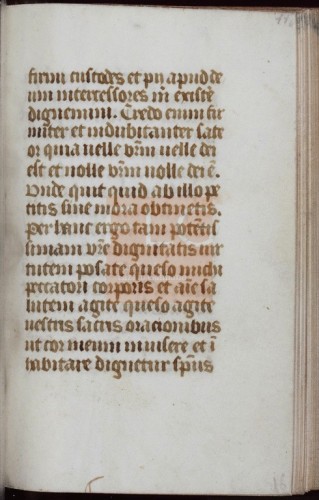 firmi custodes et pij apud de
um intercessores m̄ existe
dignemini. Credo enim fir
miter et indubitanter fate
or quia uelle vr̄m uelle dei
est et nolle vr̄m nolle dei ē.
Unde quit quid ab illo pe
titis sine mora obtinetis.
Per hanc ergo tam potētis
simam vr̄e dignitatis uir
tutem posate queso michi
peccatori corporis et aīe sa
lutem agite queso agite
uestris sacris oracionibus
ut cor meum inuisere et ī
habitare dignetur sp̄us